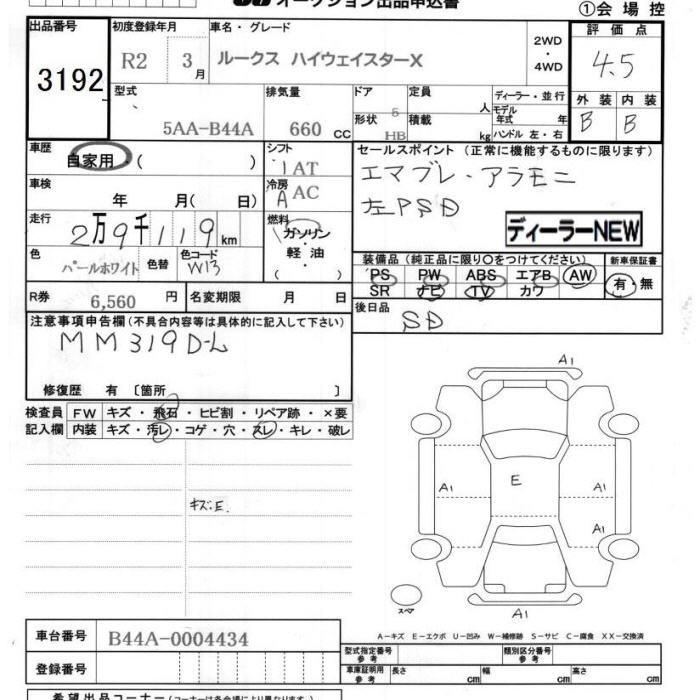 オークション出品申込書
①会場控
出品番号
3192
初度登録年月
R2 3月
車名・グレード
ルークス ハイウェイスターX
2WD
・
4WD
評価点
4.5
外装 内装
B B
型式
5AA-B44A
排気量
660 cc
ドア 5
形状 HB
定員 人
積載 kg
ディーラー・並行
モデル年式 年
ハンドル 左・右
車歴
自家用・( )
シフト
IAT
冷房
A AC
セールスポイント (正常に機能するものに限ります)
エマブレ・アラモニ
左PSD
ディーラーNEW
車検
年 月( 日)
走行
2万9千119km
燃料
ガソリン
・
軽・油
( )
色
パールホワイト
色替
色コード
W13
装備品 (純正品に限り○をつけてください)
PS PW ABS エアB AW
SR ナビ TV カワ
新車保証書
有・無
R券 6,560 円
名変期限 月 日
後日品
SD
注意事項申告欄 (不具合内容等は具体的に記入して下さい)
MM319D-L
修復歴 有 〔箇所 〕
検査員記入欄
FW キズ・飛石・ヒビ割・リペア跡・×要
内装 キズ・汚レ・コゲ・穴・スレ・キレ・破レ
キズ.E.
A1
E
A1
A1
A1
A1
スペア
A-キズ E-エクボ U-凹み W-補修跡 S-サビ C-腐食 XX-交換済
車台番号 B44A-0004434
登録番号
型式指定番号 参考
類別区分番号 参考
車庫証明用 参考 長さ cm 幅 cm 高さ cm
希望出品コーナー (コーナーは各会場により異なります)